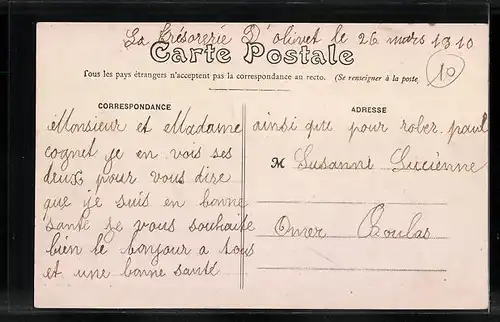 La trésorerie D'olivet le 26 mars 1910
Carte Postale
Tous les pays étrangers n'acceptent pas la correspondance au recto. (Se renseigner à la poste)
10
CORRESPONDANCE
Monsieur et Madame
cognet je en vois ses
deux pour vous dire
que je suis en bonne
santé je vous souhaite
bien le bonjour a tous
et une bonne santé
ADRESSE
ainsi que pour rober paul
M Susanne Lucienne
Omer